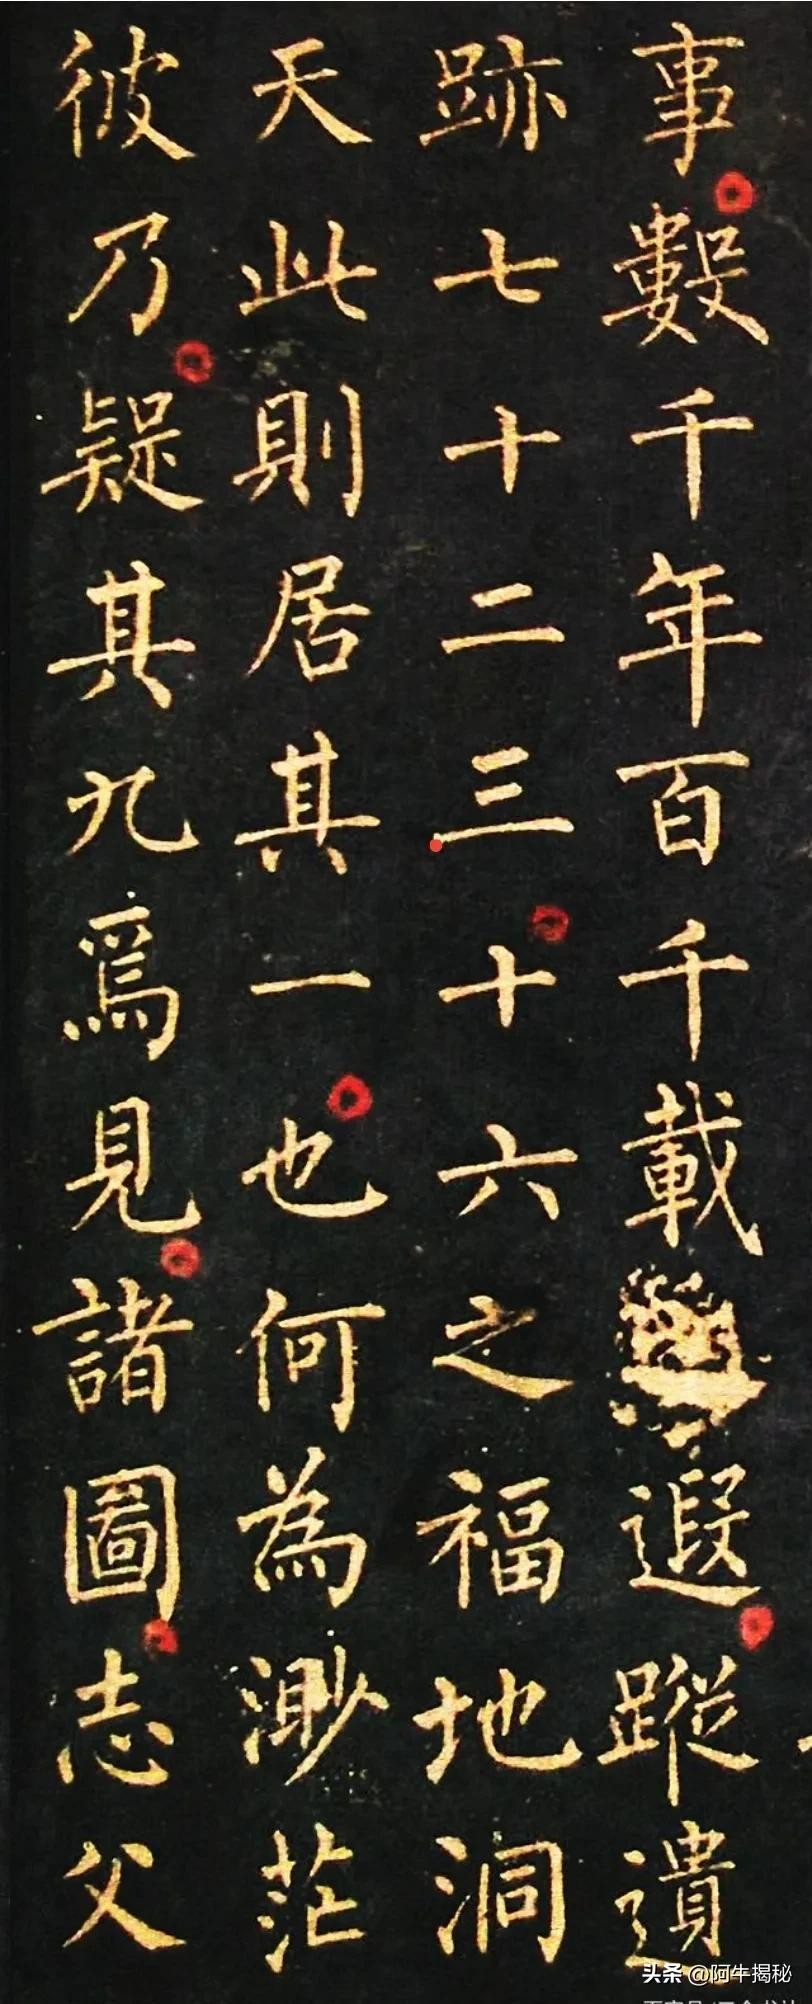 事數千年百千載遐蹤遺
跡七十二三十六之福地洞
天此則居其一也何為渺茫
彼乃疑其九焉見諸圖志父
头条 @阿牛揭秘